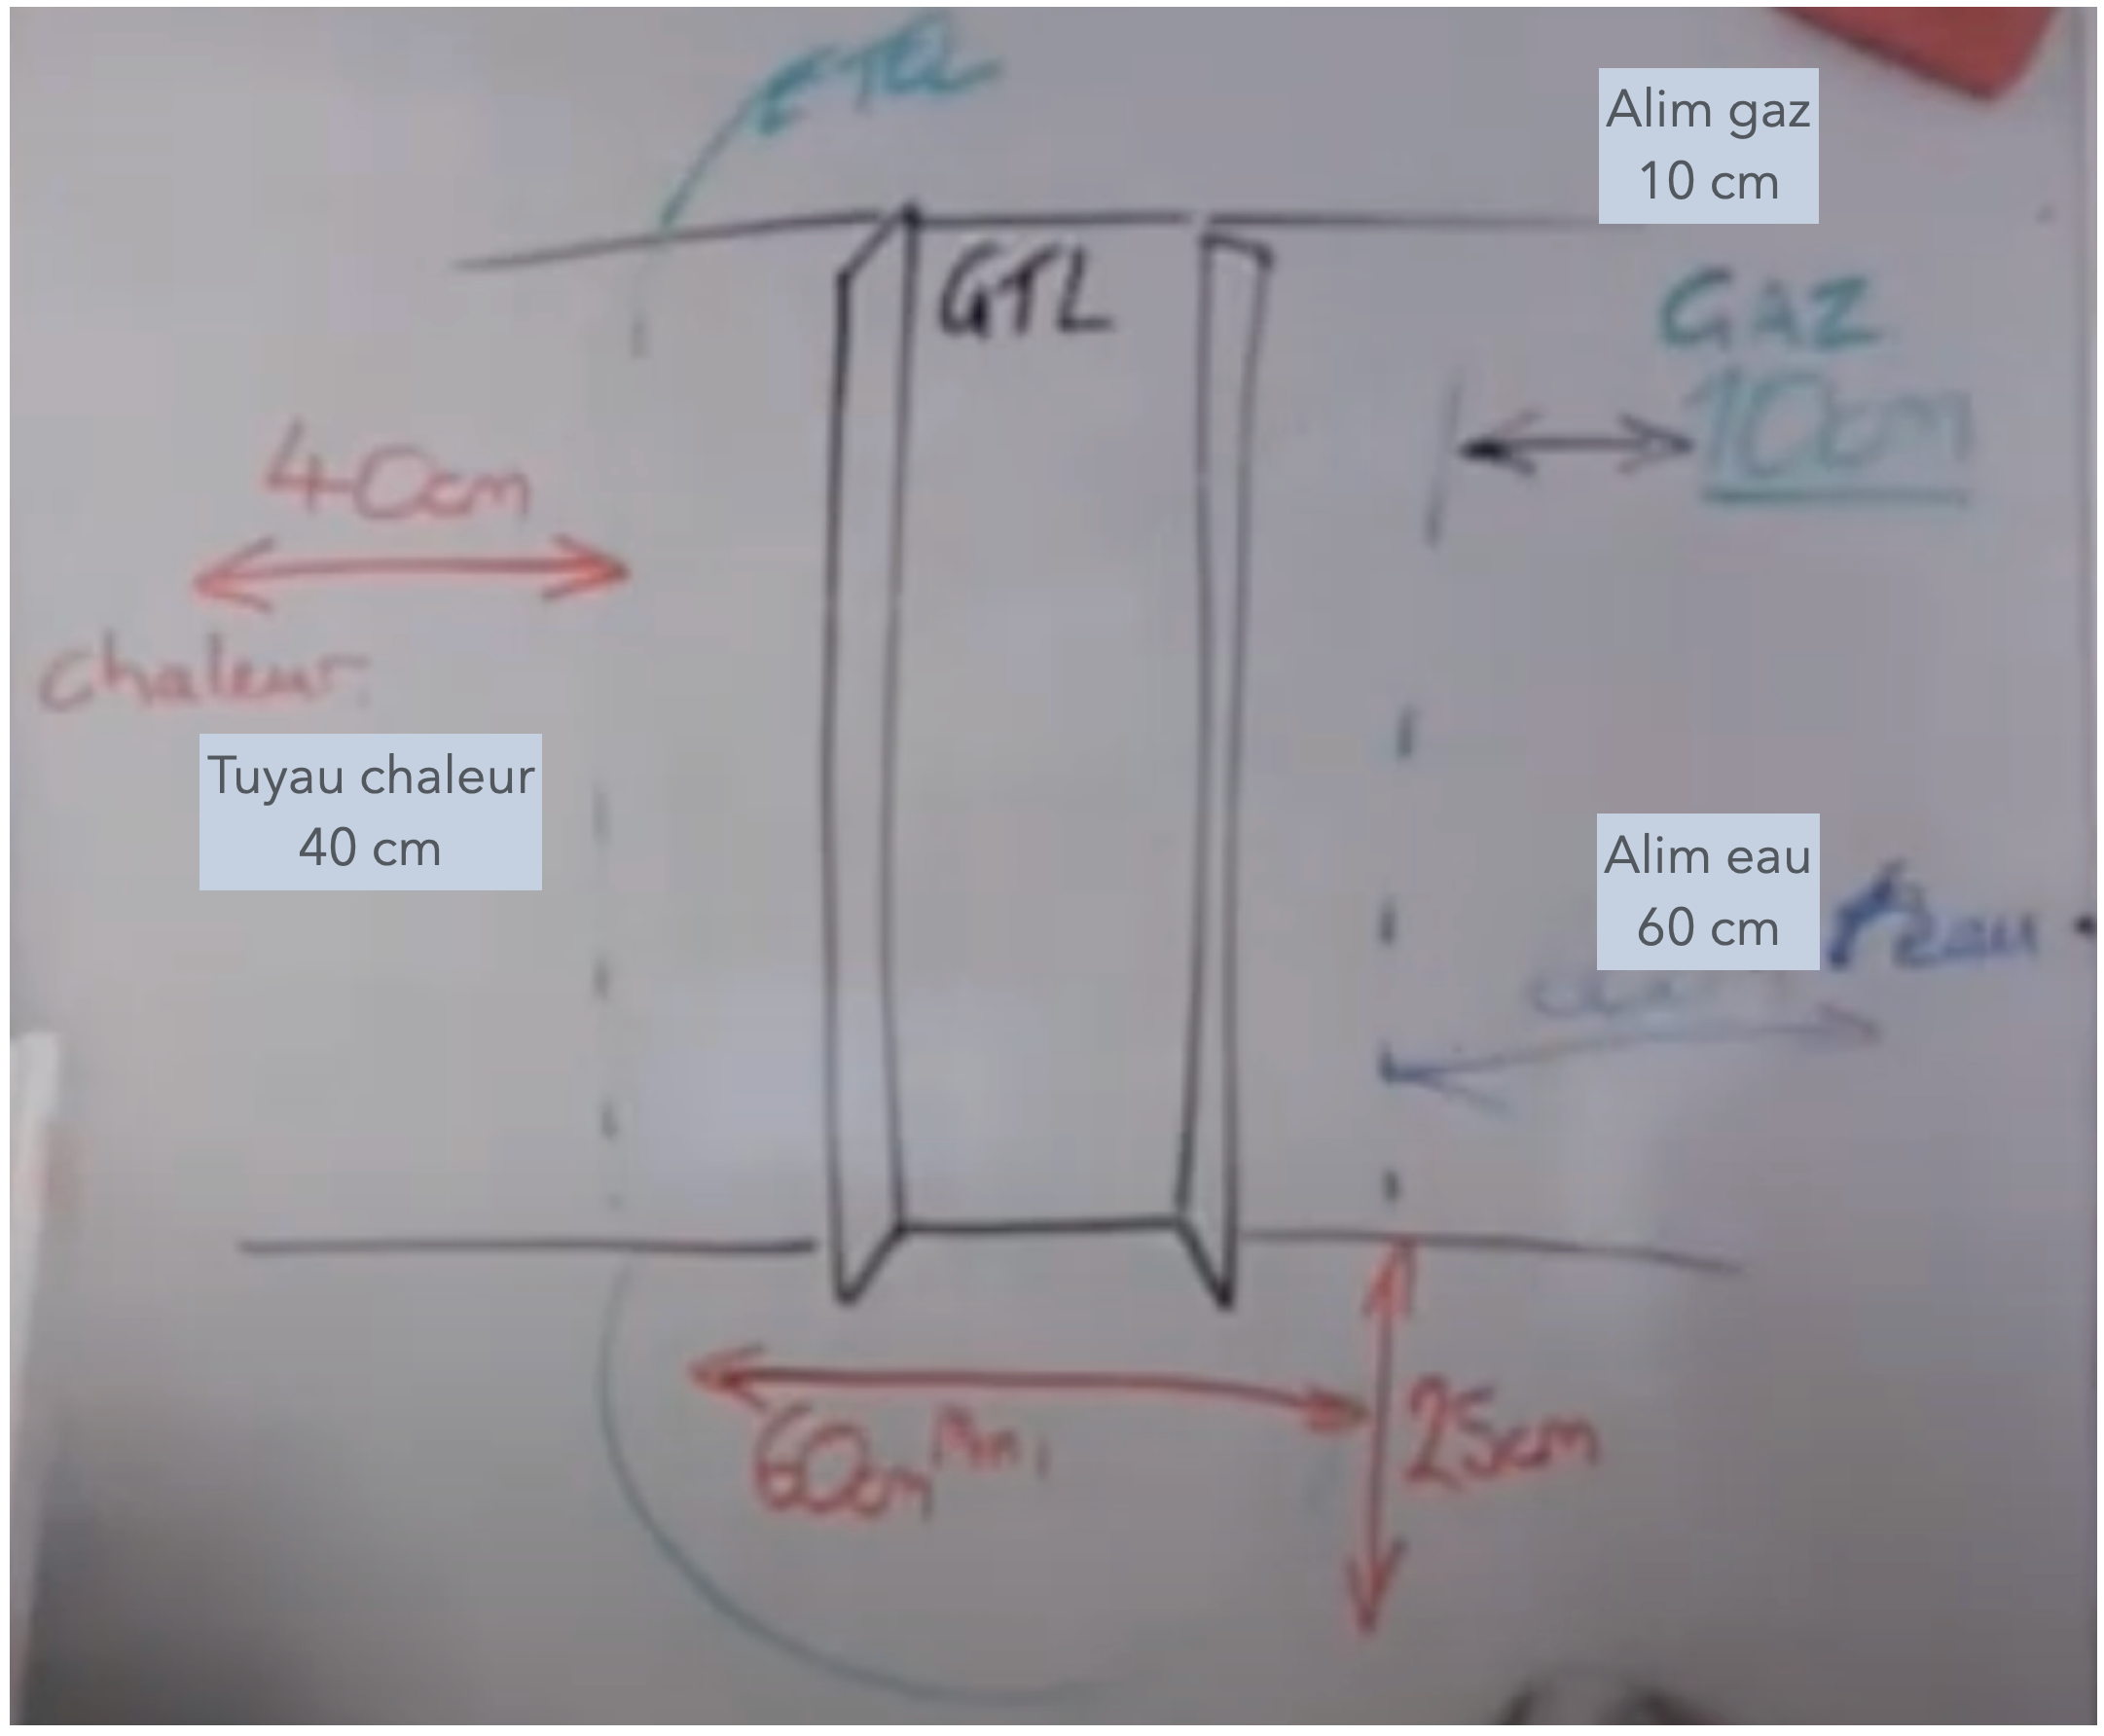 Alim gaz
10 cm
GTL
GAZ
10cm
40cm
chaleur
Tuyau chaleur
40 cm
Alim eau
60 cm
eau
60cm Mini
25cm